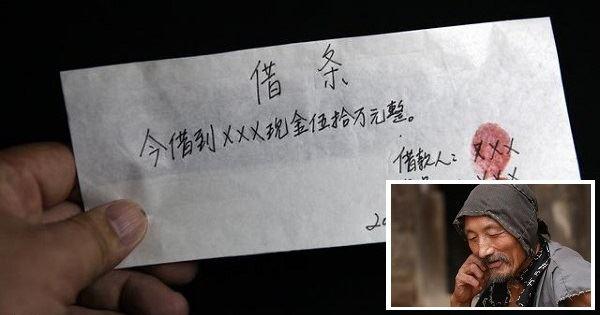 借条
今借到XXX现金伍拾万元整。
借款人：XXX
XX
20